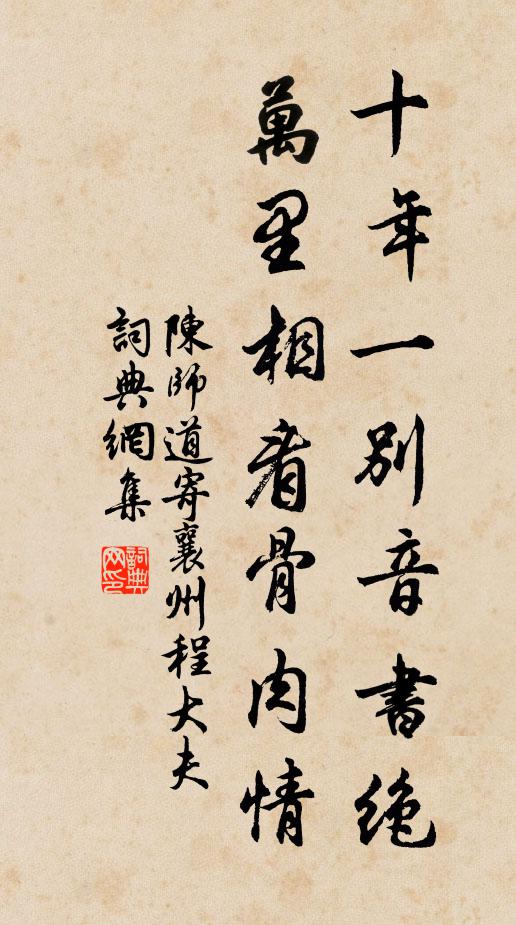 十年一別音書絶
萬里相看骨肉情
陳師道寄襄州程大夫
詞典網集
詞典網印